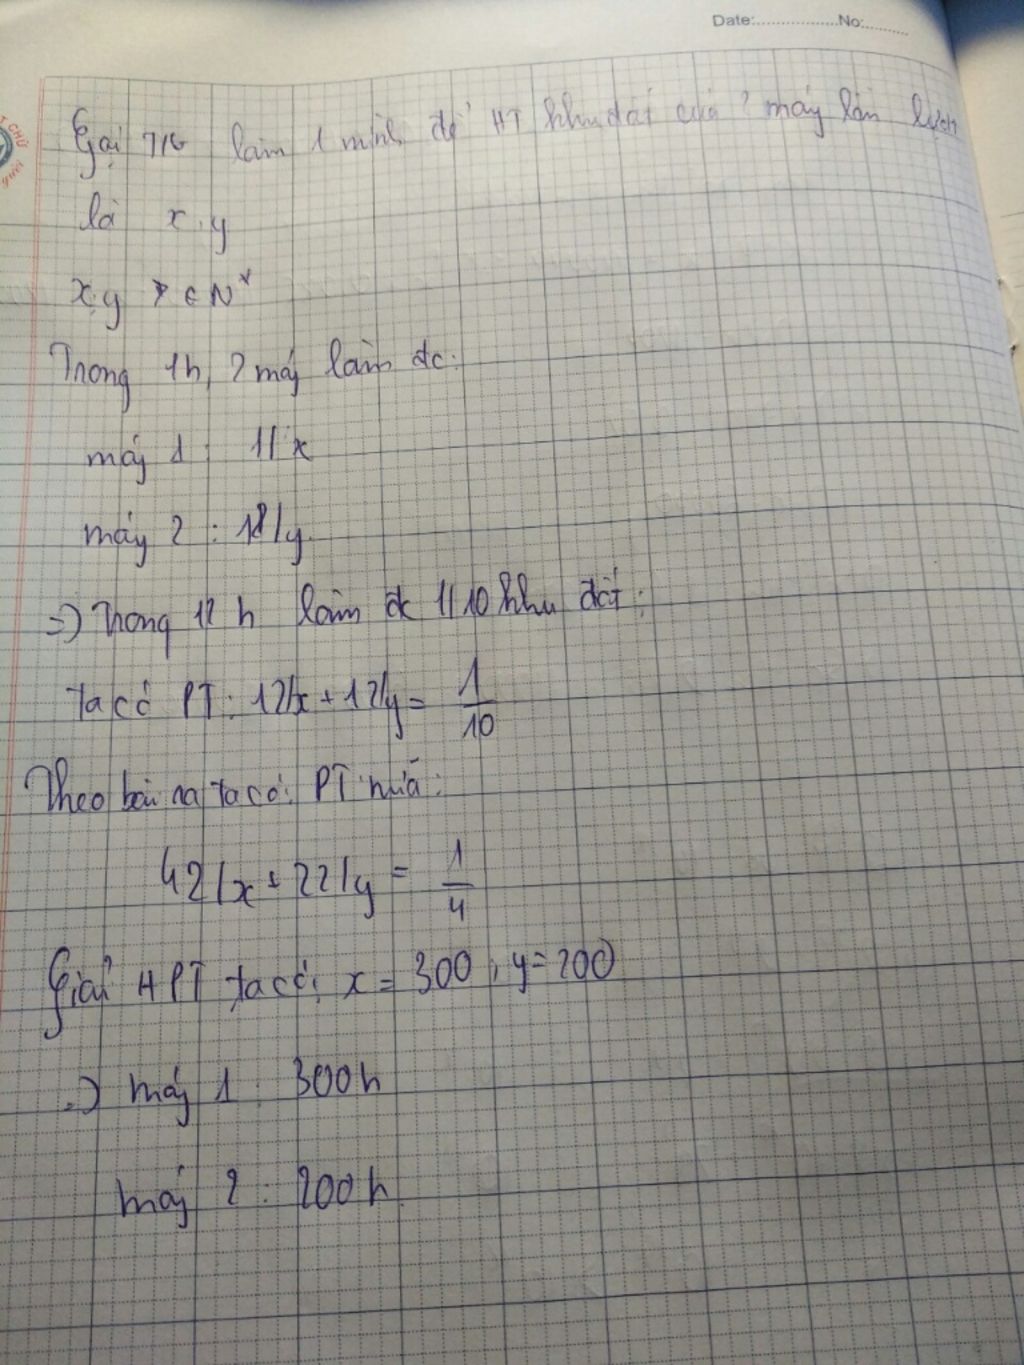 Date:.................No:..........
Gọi TIG làm 1 mình để HT khu đất của 2 máy lần lượt
là x, y
x, y ∈ N*
Trong 1h, 2 máy làm đc:
máy 1 : 1/x
máy 2 : 1/y
=> Trong 12 h làm đc 1/10 khu đất:
ta có PT: 12/x + 12/y = 1/10
Theo bài ra ta có: PT nữa:
42/x + 22/y = 1/4
Giải HPT ta có: x = 300, y = 200
=> máy 1 : 300h
máy 2 : 200h